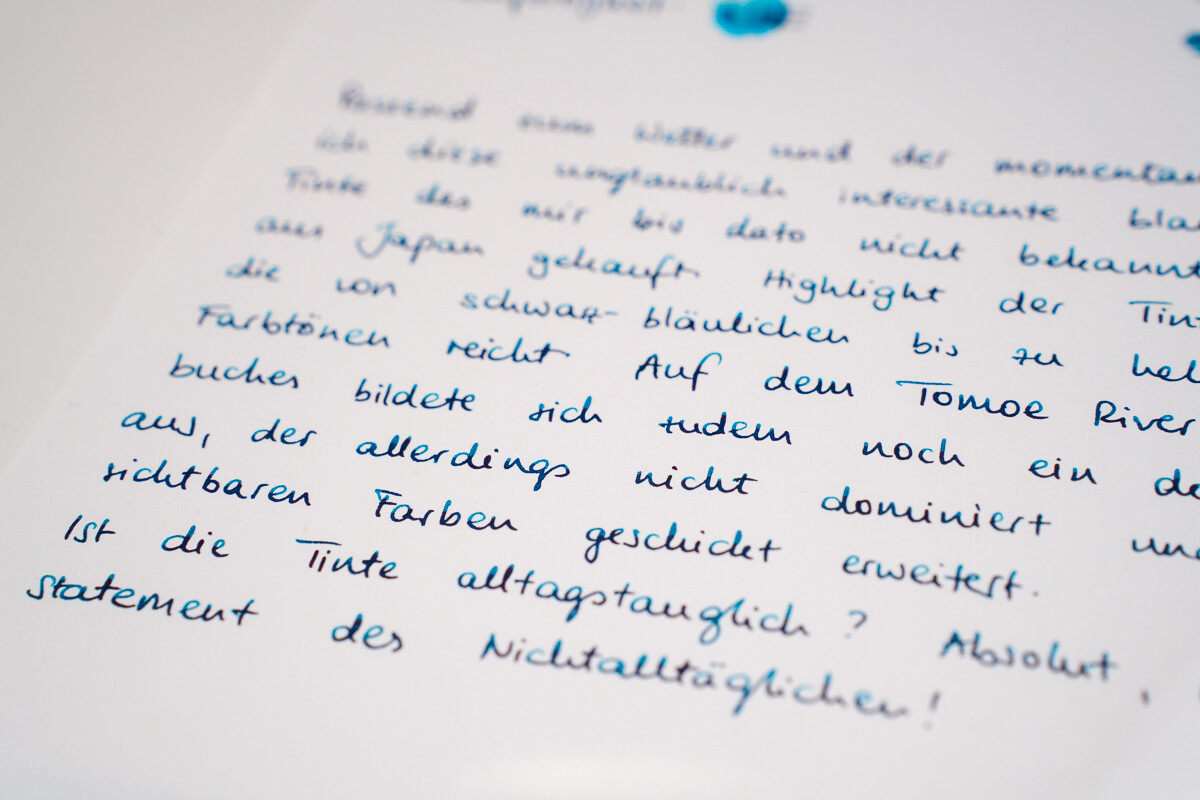 Passend zum Wetter und der momentan
ich diese unglaublich interessante bla
Tinte des mir bis dato nicht bekannt
aus Japan gekauft. Highlight der Tint
die von schwarz-bläulichen bis zu hel
Farbtönen reicht. Auf dem Tomoe River
buches bildete sich zudem noch ein de
aus, der allerdings nicht dominiert und
sichtbaren Farben geschickt erweitert.
Ist die Tinte alltagstauglich? Absolut,
statement des Nichtalltäglichen!